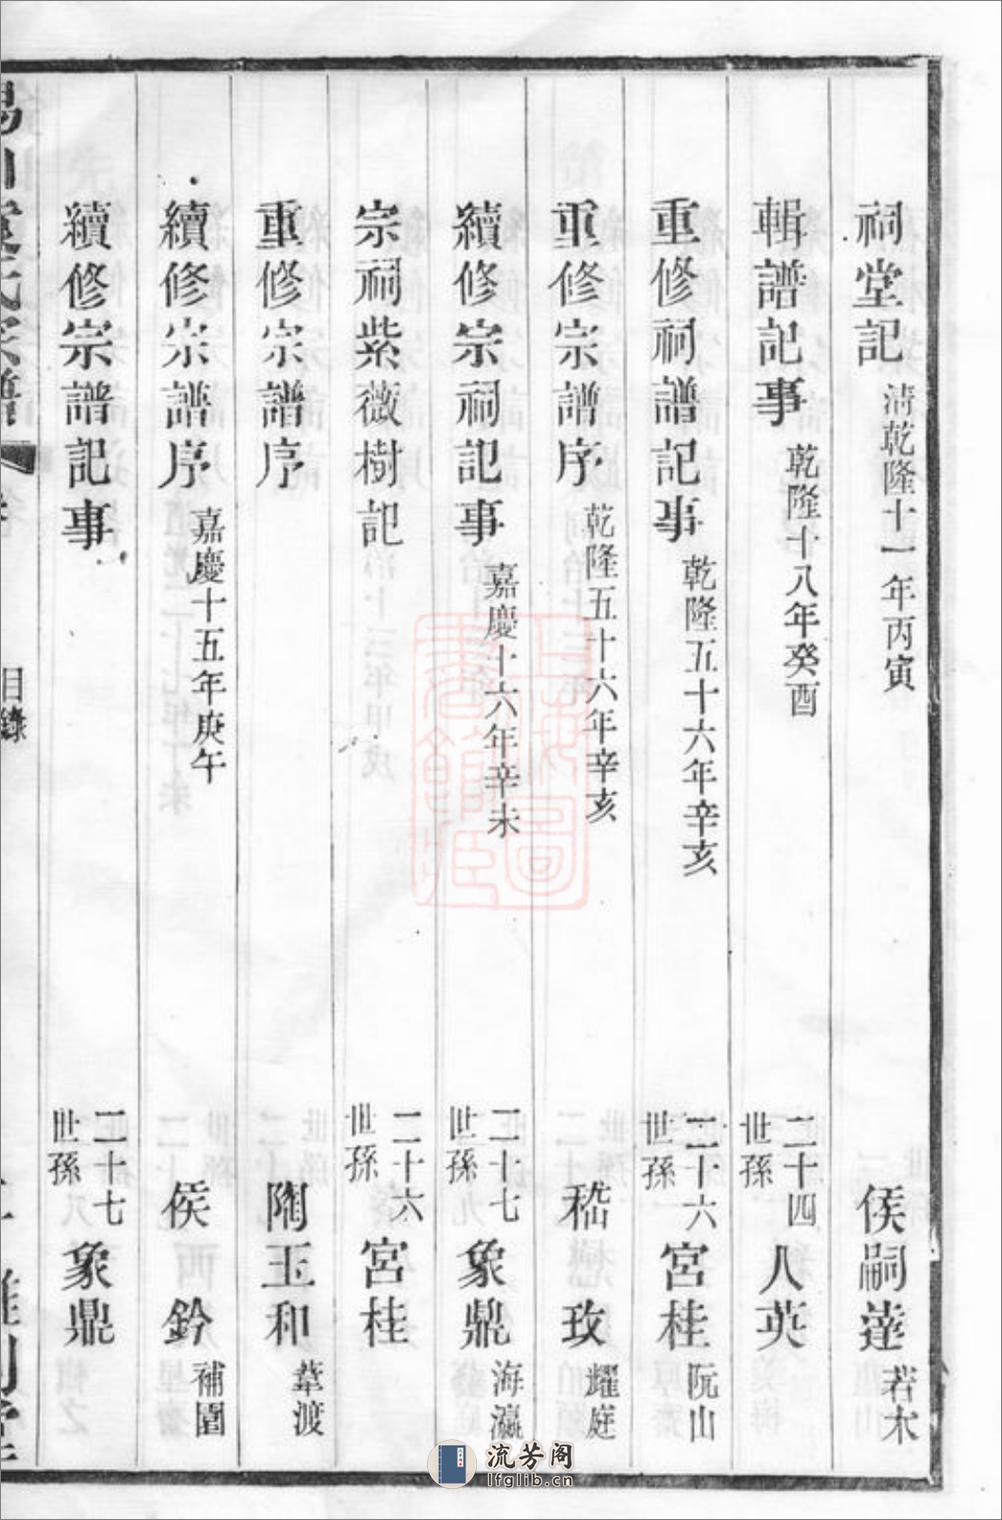 祠堂記 清乾隆十一年丙寅 侯嗣達 若木
輯譜記事 乾隆十八年癸酉 二十四世孫 人英
重修祠譜記事 乾隆五十六年辛亥 二十六世孫 宮桂 阮山
重修宗譜序 乾隆五十六年辛亥 嵇玫 耀庭
續修宗祠記事 嘉慶十六年辛未 二十七世孫 象鼎 海瀛
宗祠紫薇樹記 二十六世孫 宮桂
重修宗譜序 陶玉和 葦渡
續修宗譜序 嘉慶十五年庚午 侯鈐 補園
續修宗譜記事 二十七世孫 象鼎
目錄
上海圖書館藏
流芳阁
lfglib.cn